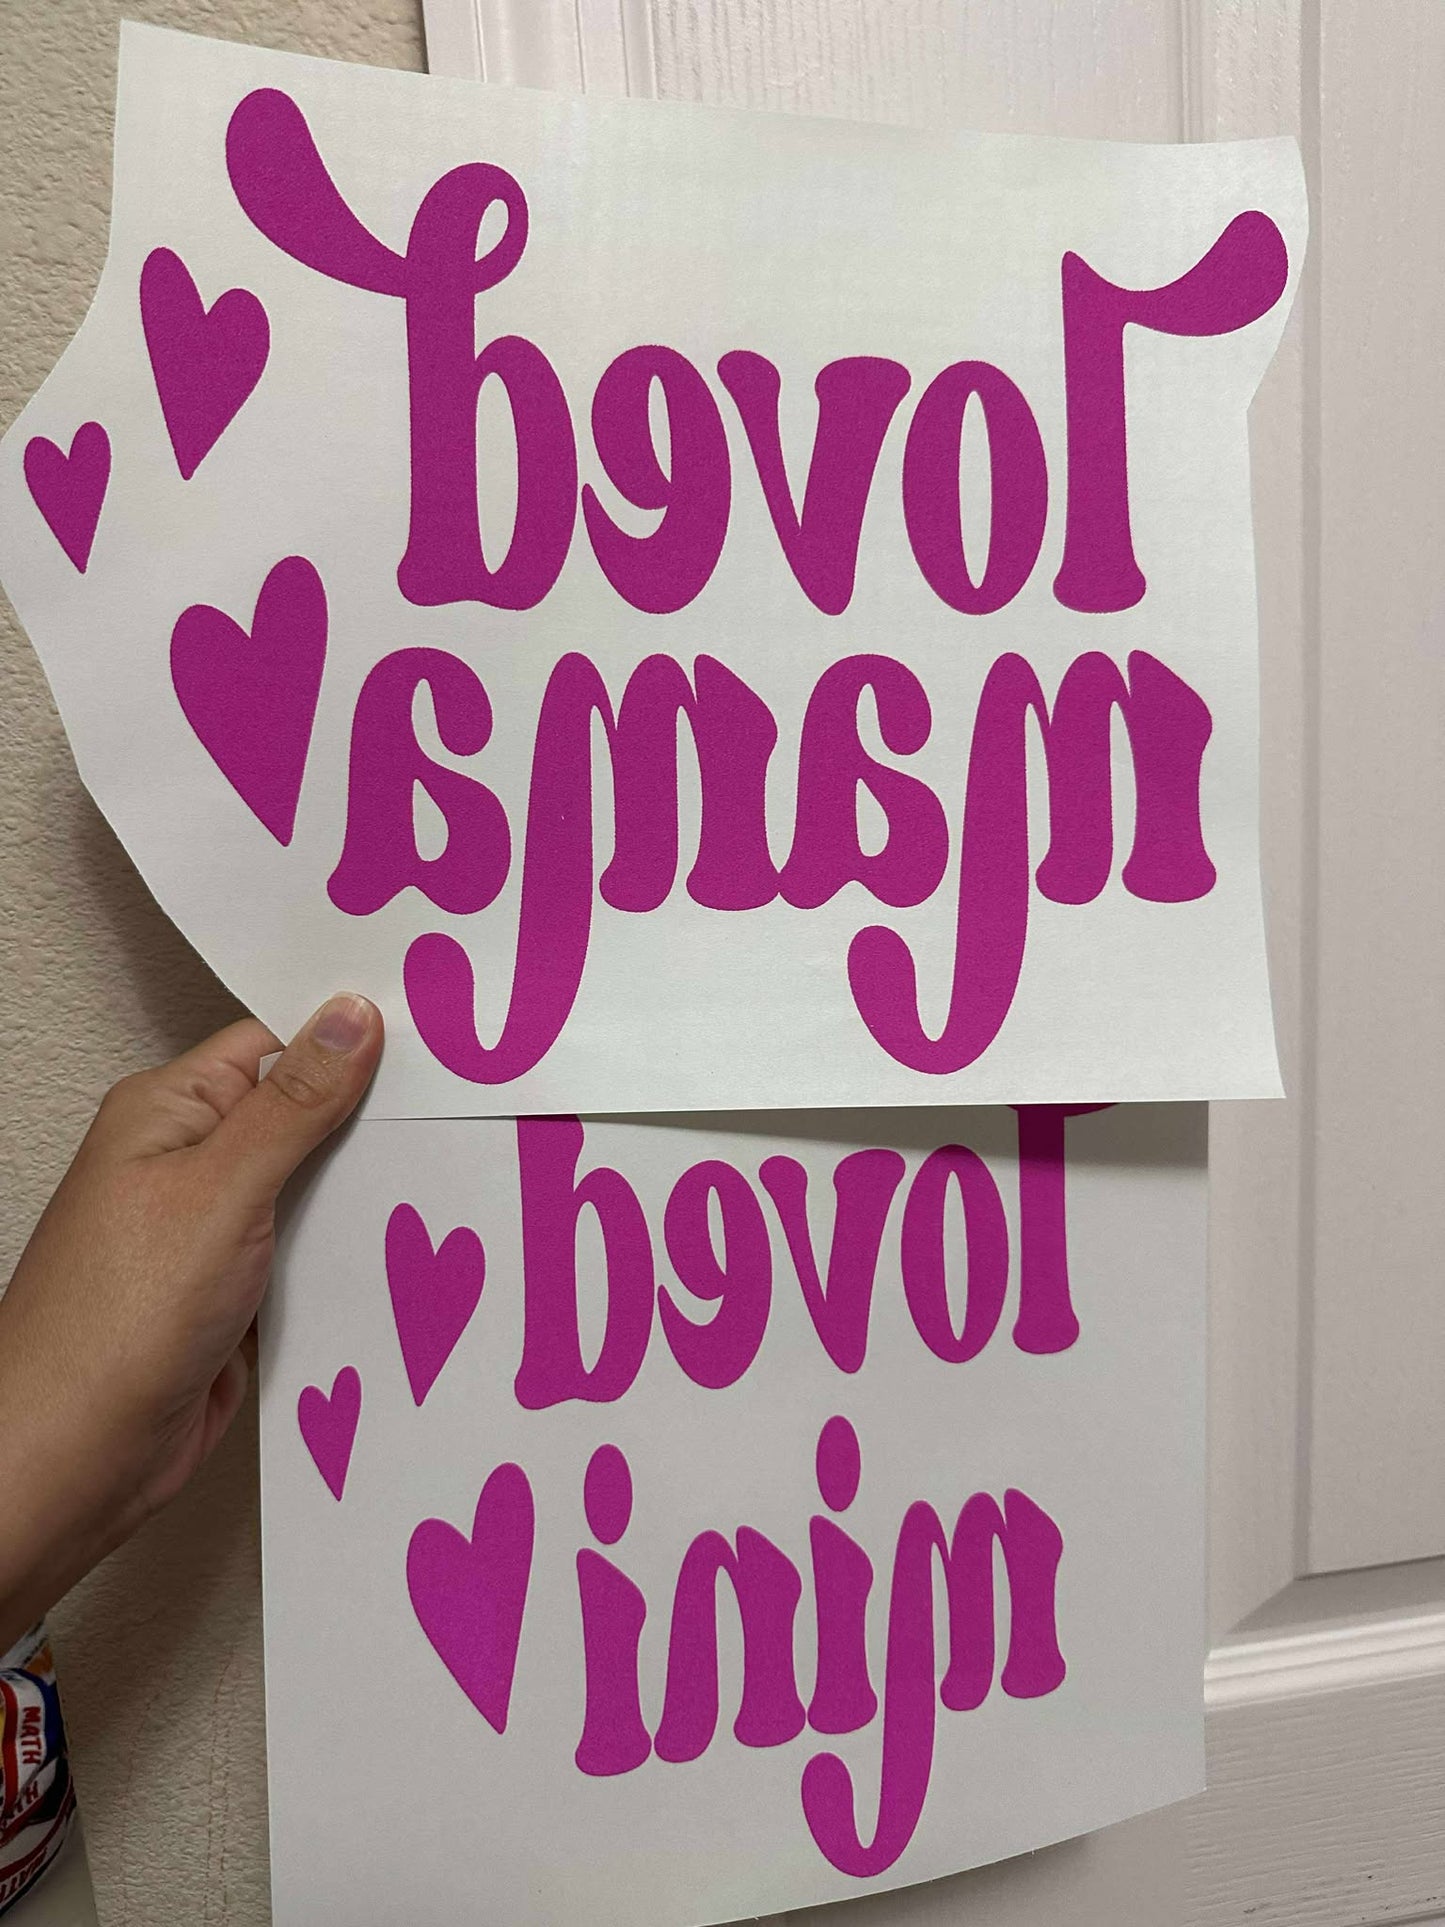 loved
mama
loved
mini
MATH